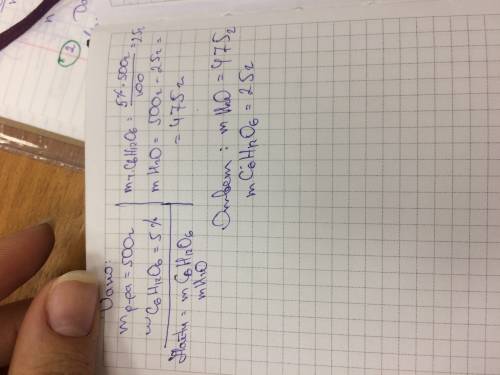 Дано:
m р-ра = 500г
w C6H12O6 = 5%
Найти = m C6H12O6
m H2O
m ч. C6H12O6 = 5% · 500г / 100 = 25г
m H2O = 500г - 25г =
= 475г
Ответ: m H2O = 475г
m C6H12O6 = 25г
2